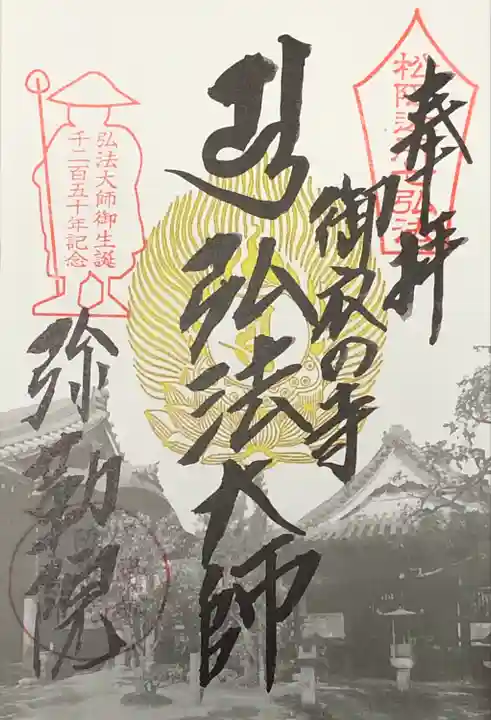 奉拝
御衣の寺
弘法大師
弥勒院
弘法大師御生誕
千二百五十年記念